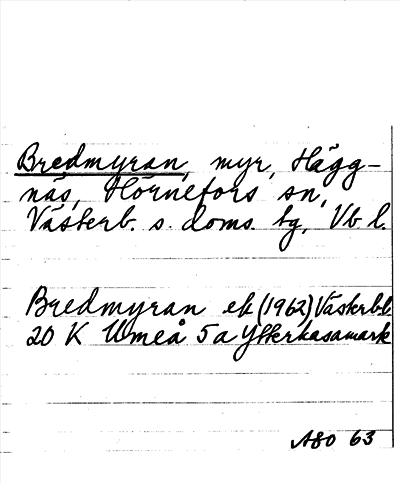 Bredmyran, myr, Hägg-
näs, Hörnefors sn,
Västerb. s. doms. tg, Vb l.
Bredmyran ek (1962) Västerb.l.
20 K Umeå 5a Ytterkasamark
A80 63